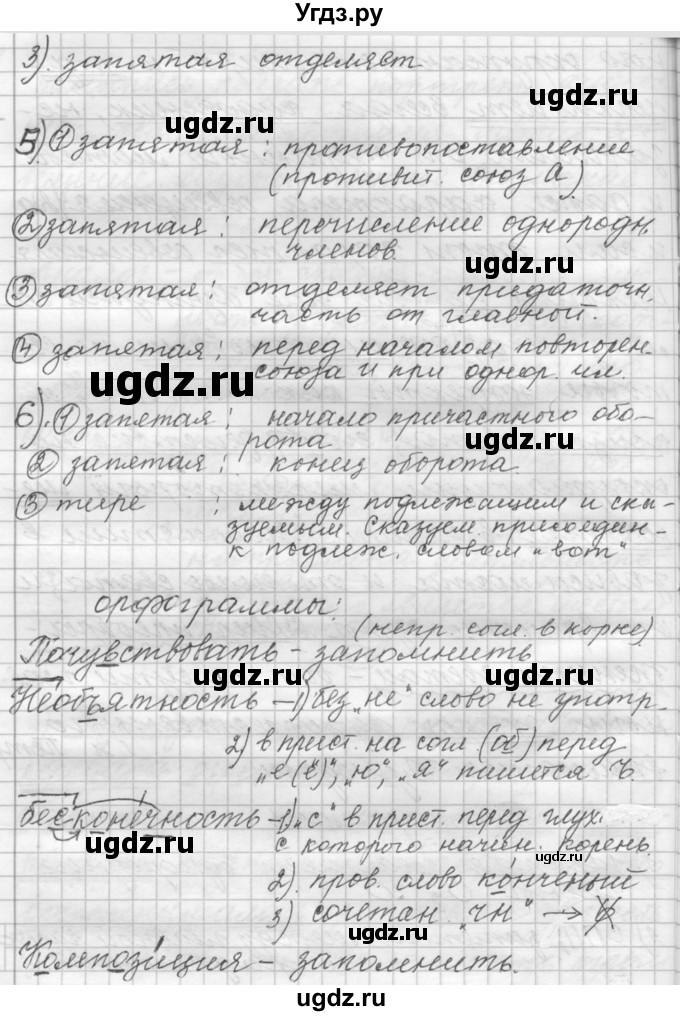 Угдз.ру
3). запятая отделяет
ugdz.ru
5) ① запятая : противопоставление
(противит. союз А)
② запятая : перечисление однородн.
членов.
ugdz.ru
③ запятая : отделяет придаточн.
часть от главной.
④ запятая : перед началом повторен.
союза и при однор. чл.
ugdz.ru
6). ① запятая : начало причастного обо-
рота
② запятая : конец оборота.
③ тире : между подлежащим и ска-
зуемым. Сказуем. присоедин-
к подлеж. словом „вот“
ugdz.ru
орфограммы:
(непр. согл. в корне)
Почувствовать – запомнить
ugdz.ru
Необъятность – 1) без „не“ слово не употр.
2) в прист. на согл. (об) перед
„е(ё)“, „ю“, „я“ пишется ъ.
бесконечность – 1) „с“ в прист. перед глух.
с которого начин. корень.
ugdz.ru
ugdz.ru
2). пров. слово конченый
3) сочетан. „чн“ →
ugdz.ru
Композиция – запомнить.
ugdz.ru